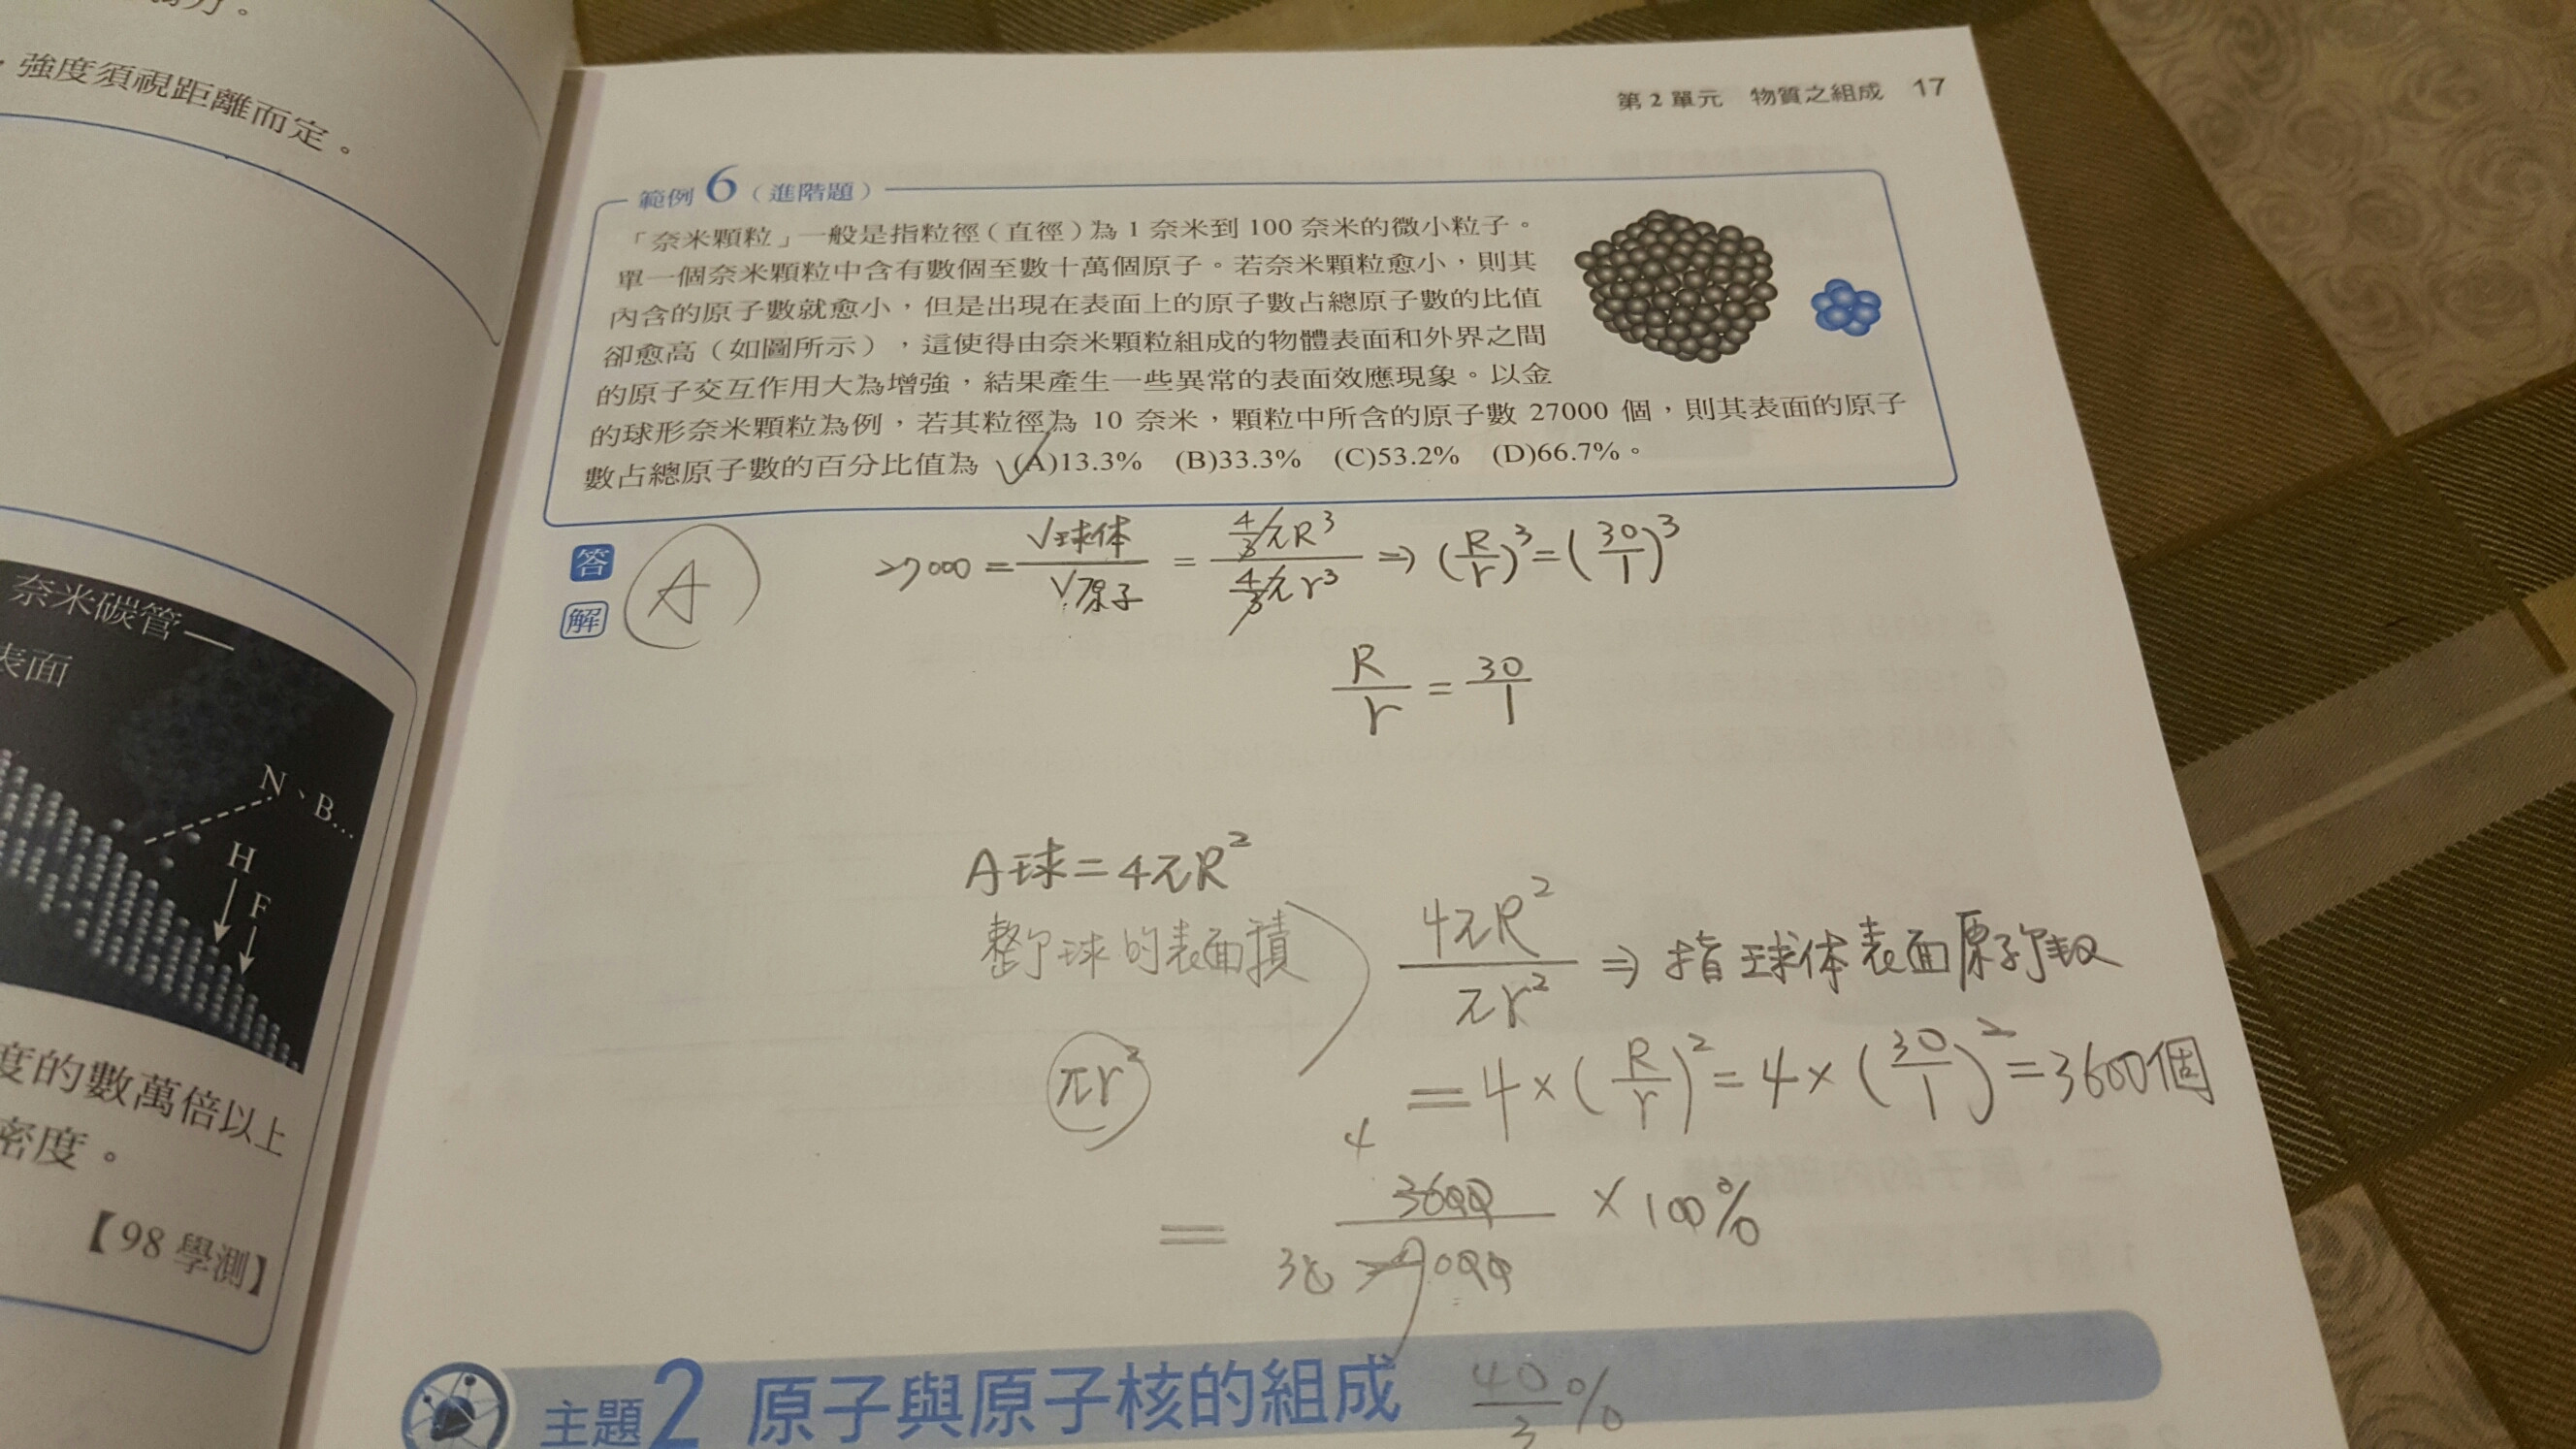 ，強度須視距離而定。
第2單元 物質之組成 17
範例6（進階題）
「奈米顆粒」一般是指粒徑（直徑）為1奈米到100奈米的微小粒子。
單一個奈米顆粒中含有數個至數十萬個原子。若奈米顆粒愈小，則其
內含的原子數就愈小，但是出現在表面上的原子數占總原子數的比值
卻愈高（如圖所示），這使得由奈米顆粒組成的物體表面和外界之間
的原子交互作用大為增強，結果產生一些異常的表面效應現象。以金
的球形奈米顆粒為例，若其粒徑為10奈米，顆粒中所含的原子數27000個，則其表面的原子
數占總原子數的百分比值為 (A)13.3% (B)33.3% (C)53.2% (D)66.7%。
答
解
A
27000 = V球体 / V原子 = 4/3πR³ / 4/3πr³ ⇒ (R/r)³ = (30/1)³
R/r = 30/1
A球 = 4πR²
整個球的表面積
πr²
4πR² / πr² ⇒ 指球体表面原子個數
= 4×(R/r)² = 4×(30/1)² = 3600個
4
= 3600 / 27000 × 100%
30
40/3 %
奈米碳管—
表面
N、B...
H
F
度的數萬倍以上
密度。
【98學測】
主題2 原子與原子核的組成